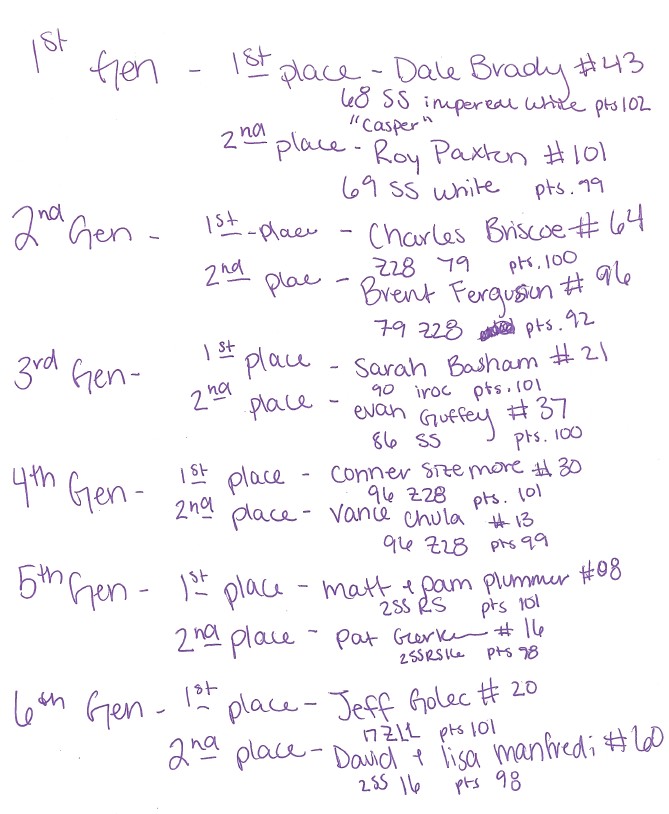 1st Gen - 1st place - Dale Brady #43
68 SS impereal white pts 102
"Casper"
2nd place - Roy Paxton #101
69 SS white pts. 99
2nd Gen - 1st - place - Charles Briscoe # 64
Z28 79 pts. 100
2nd place - Brent Ferguson # 96
79 Z28 pts. 92
3rd Gen - 1st place - Sarah Basham # 21
90 iroc pts. 101
2nd place - evan Guffey # 37
86 SS pts. 100
4th Gen - 1st place - Conner Sizemore # 30
96 Z28 pts. 101
2nd place - Vance Chula # 13
96 Z28 pts 99
5th Gen - 1st place - Matt + pam plummer #08
2SS RS pts 101
2nd place - Pat # 16
2SSRS pts 98
6th Gen - 1st place - Jeff Golec # 20
17 ZL1 pts 101
2nd place - David + lisa manfredi #60
2SS 16 pts 98